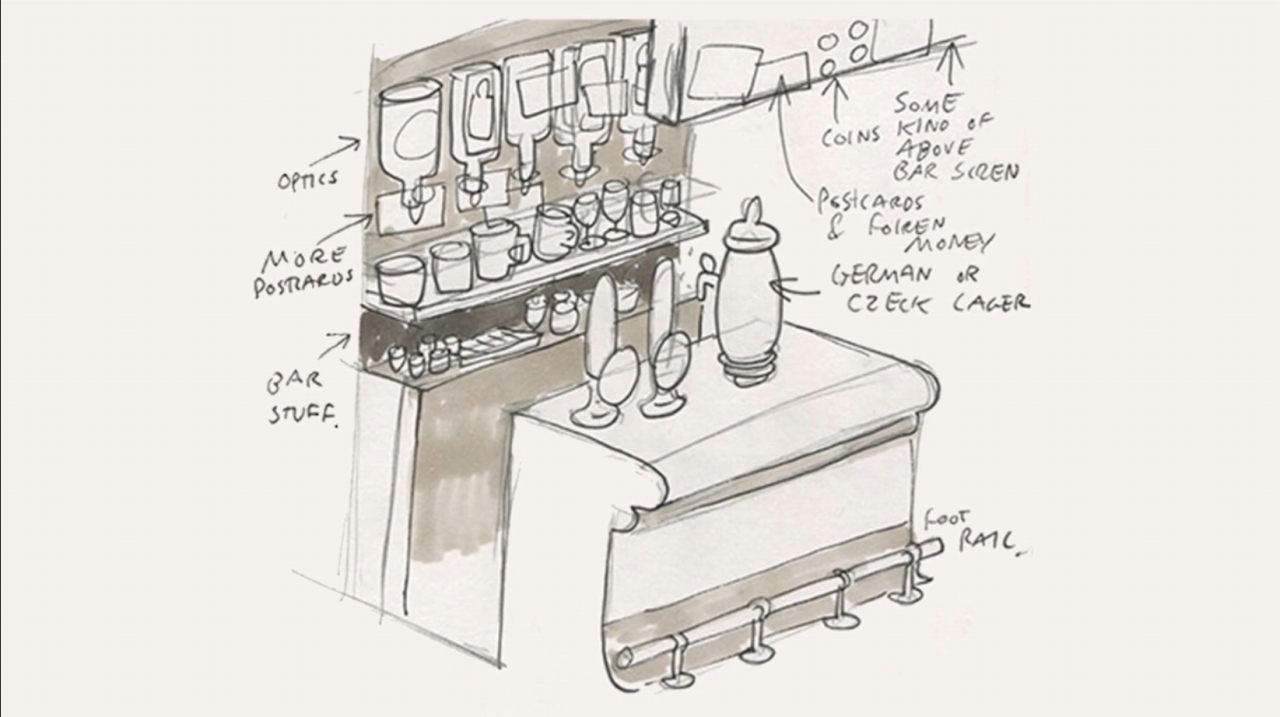 OPTICS
MORE
POSTCARDS
BAR
STUFF.
COINS
SOME
KIND OF
ABOVE
BAR SCREN
POSTCARDS
& FOIREN
MONEY
GERMAN OR
CZECK LAGER
FOOT
RAIL.